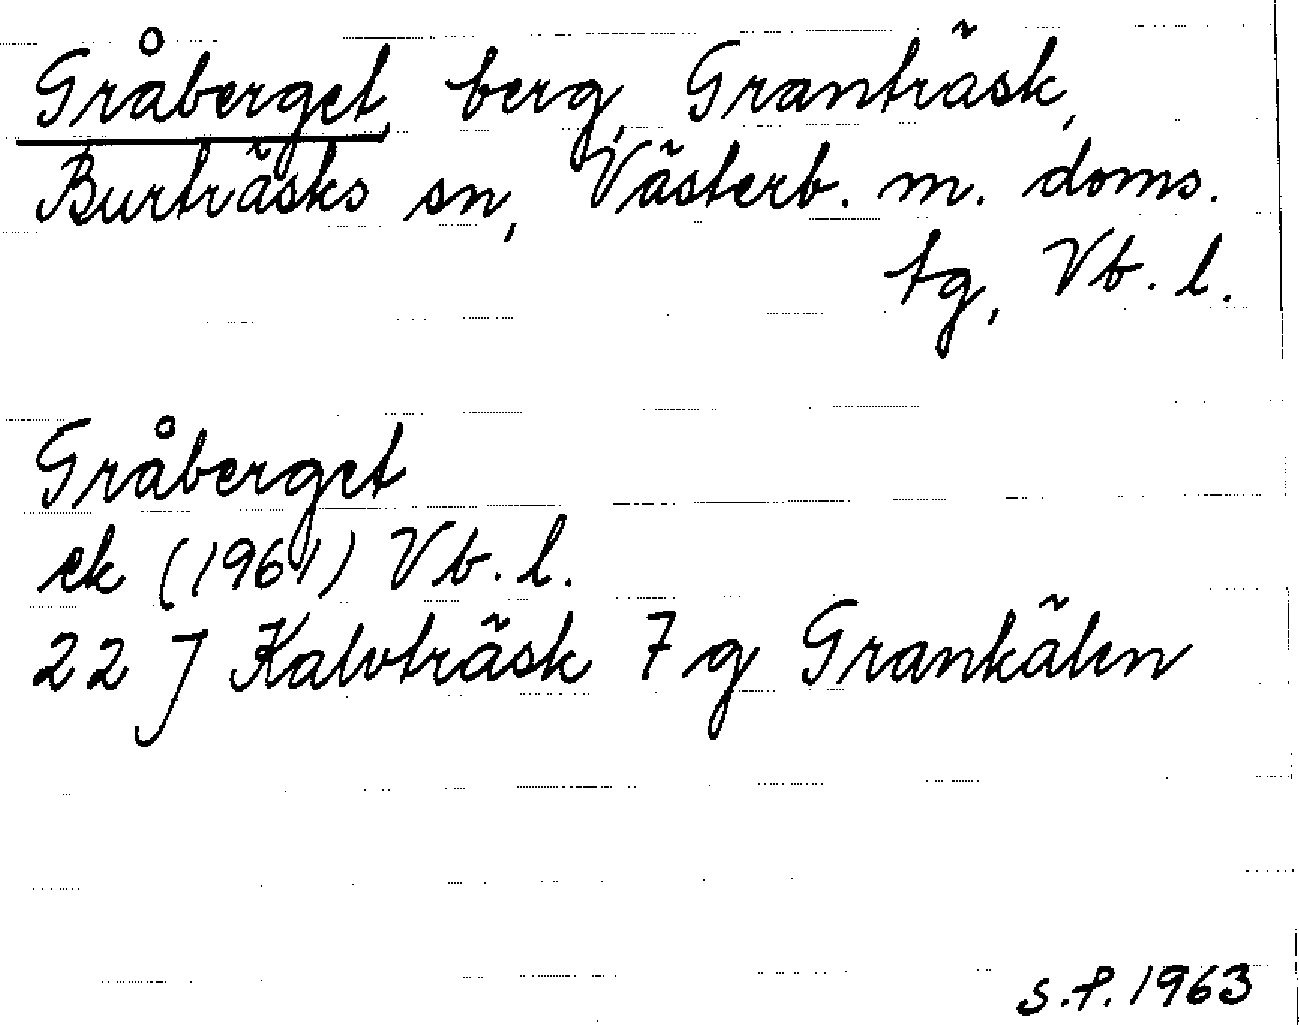 Gråberget, berg, Granträsk,
Burträsks sn, Västerb. m. doms.
tg, Vb. l.
Gråberget
ek (1961) Vb. l.
22 J Kalvträsk 7 g Grankälen
S.P. 1963